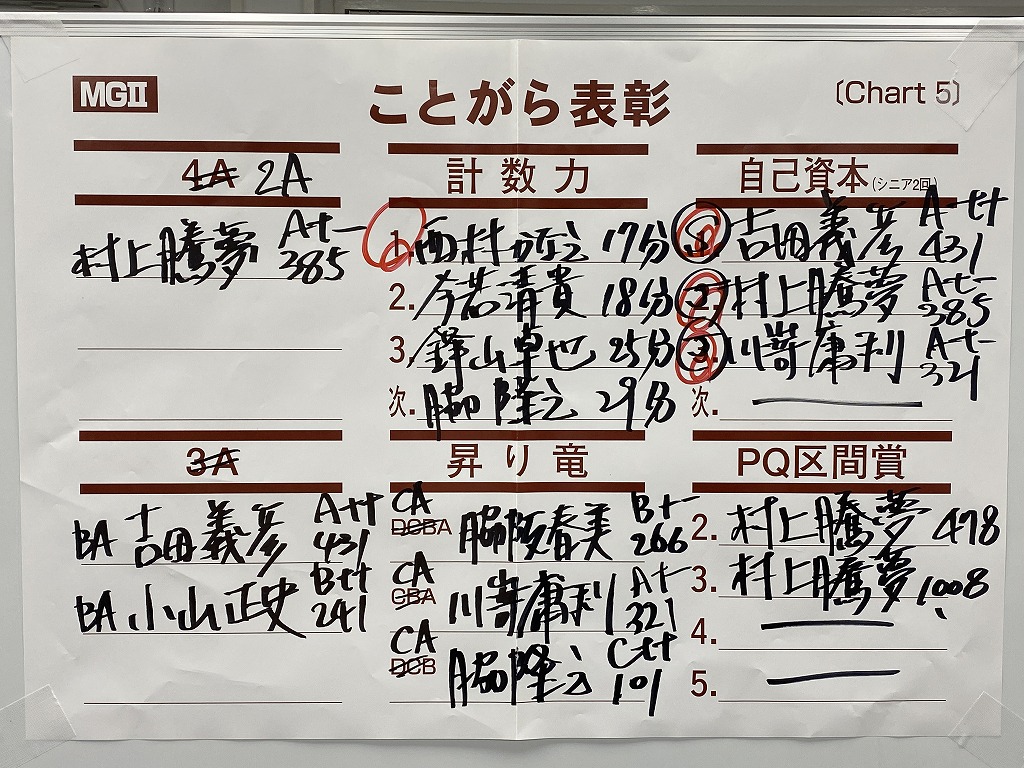 MGII
ことがら表彰
〔Chart 5〕
4A 2A
村上騰夢 A+- 385
計数力
1. 西村 17分
2. 今若清貴 18分
3. 鐸山卓也 25分
次. 脇 隆之 29分
自己資本(シニア2回)
1. 吉田義彦 A++ 431
2. 村上騰夢 A+- 385
3. 川嵜庸利 A+- 321
次.
3A
BA 吉田義彦 A++ 431
BA 小山正史 B++ 241
昇り竜
CA DCBA 脇阪春美 B+- 266
CA CBA 川嵜庸利 A+- 321
CA DCB 脇 隆之 C++ 101
PQ区間賞
2. 村上騰夢 478
3. 村上騰夢 1008
4.
5.